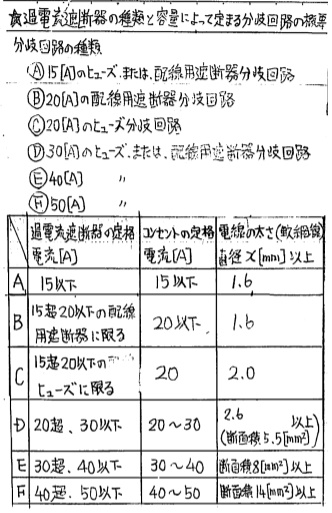 過電流遮断器の種類と容量によって定まる分岐回路の標準
分岐回路の種類
Ⓐ15[A]のヒューズ、または、配線用遮断器分岐回路
Ⓑ20[A]の配線用遮断器分岐回路
Ⓒ20[A]のヒューズ分岐回路
Ⓓ30[A]のヒューズ、または、配線用遮断器分岐回路
Ⓔ40[A] 〃
Ⓕ50[A] 〃
過電流遮断器の定格電流[A] コンセントの定格電流[A] 電線の太さ(軟銅線)直径x[mm]以上
A 15以下 15以下 1.6
B 15超20以下の配線用遮断器に限る 20以下 1.6
C 15超20以下のヒューズに限る 20 2.0
D 20超、30以下 20~30 2.6以上(断面積5.5[mm²])
E 30超、40以下 30~40 断面積8[mm²]以上
F 40超、50以下 40~50 断面積14[mm²]以上